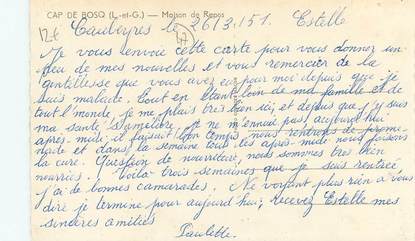 CAP DE BOSQ (L.-et-G.) — Maison de Repos
12€
Caubeyres le 26/3/51. Estelle
Je vous envoie cette carte pour vous donnez un
peu de mes nouvelles et vous remercier de la
gentillesse que vous avez eu pour moi depuis que je
suis malade. Tout en étant loin de ma famille et de
tout l monde, je me plais très bien ici; et depuis que j'y suis
ma santé s'améliore, on ne m'ennui pas, aujourd'hui
après midi il faisait bon temps nous rentrons de prome
nade et dans la semaine tous les après-midi nous faisons
la cure. Question de nourriture, nous sommes très bien
nourries. Voilà trois semaines que je suis rentrée
j'ai de bonnes camarades. Ne voyant plus rien a vous
dire je termine pour aujourd'hui; Recevez Estelle mes
sincères amitiés
Paulette.